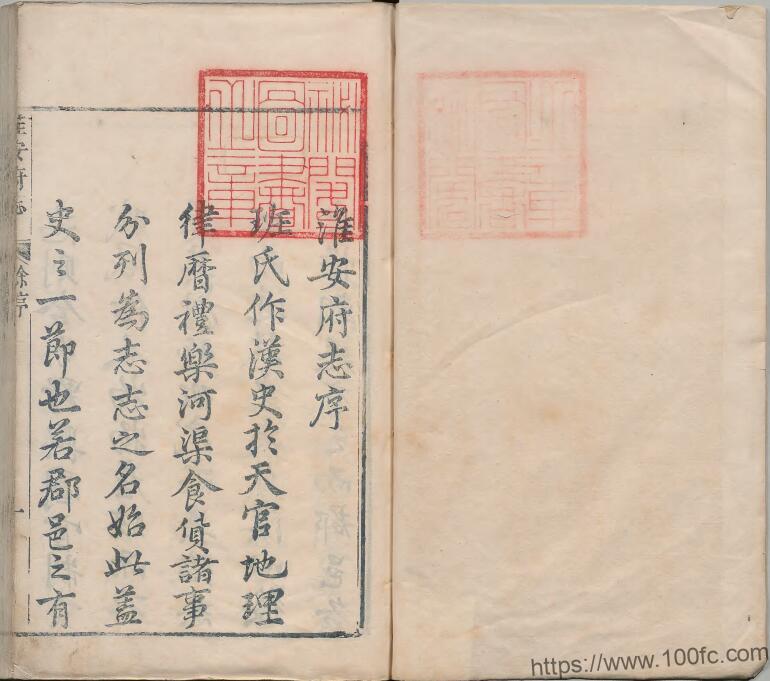 淮安府志序
班氏作漢史於天官地理
律曆禮樂河渠食貨諸事
分列為志志之名始此蓋
史之一節也若郡邑之有
淮安府志
徐序
一
https://www.100fc.com